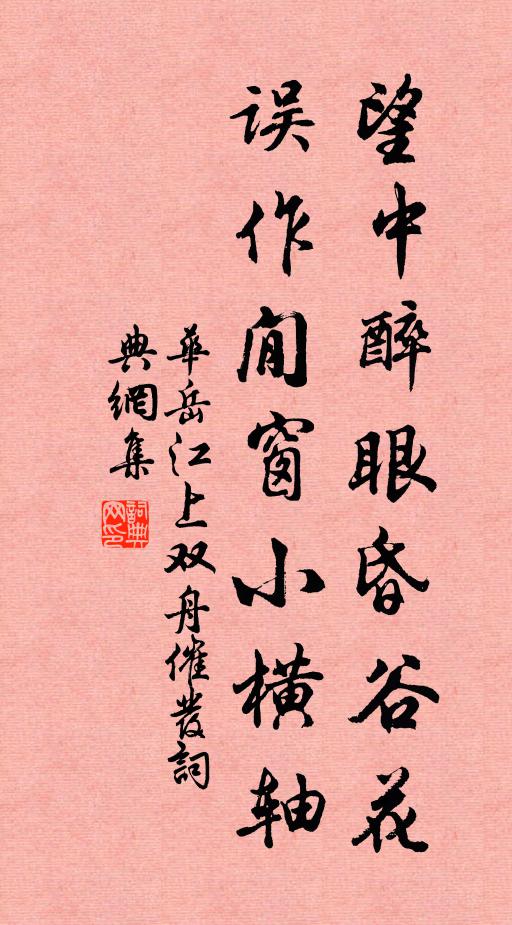 望中醉眼昏谷花
误作閒窗小横轴
華岳江上双舟催發詞
典網集
詞典网印